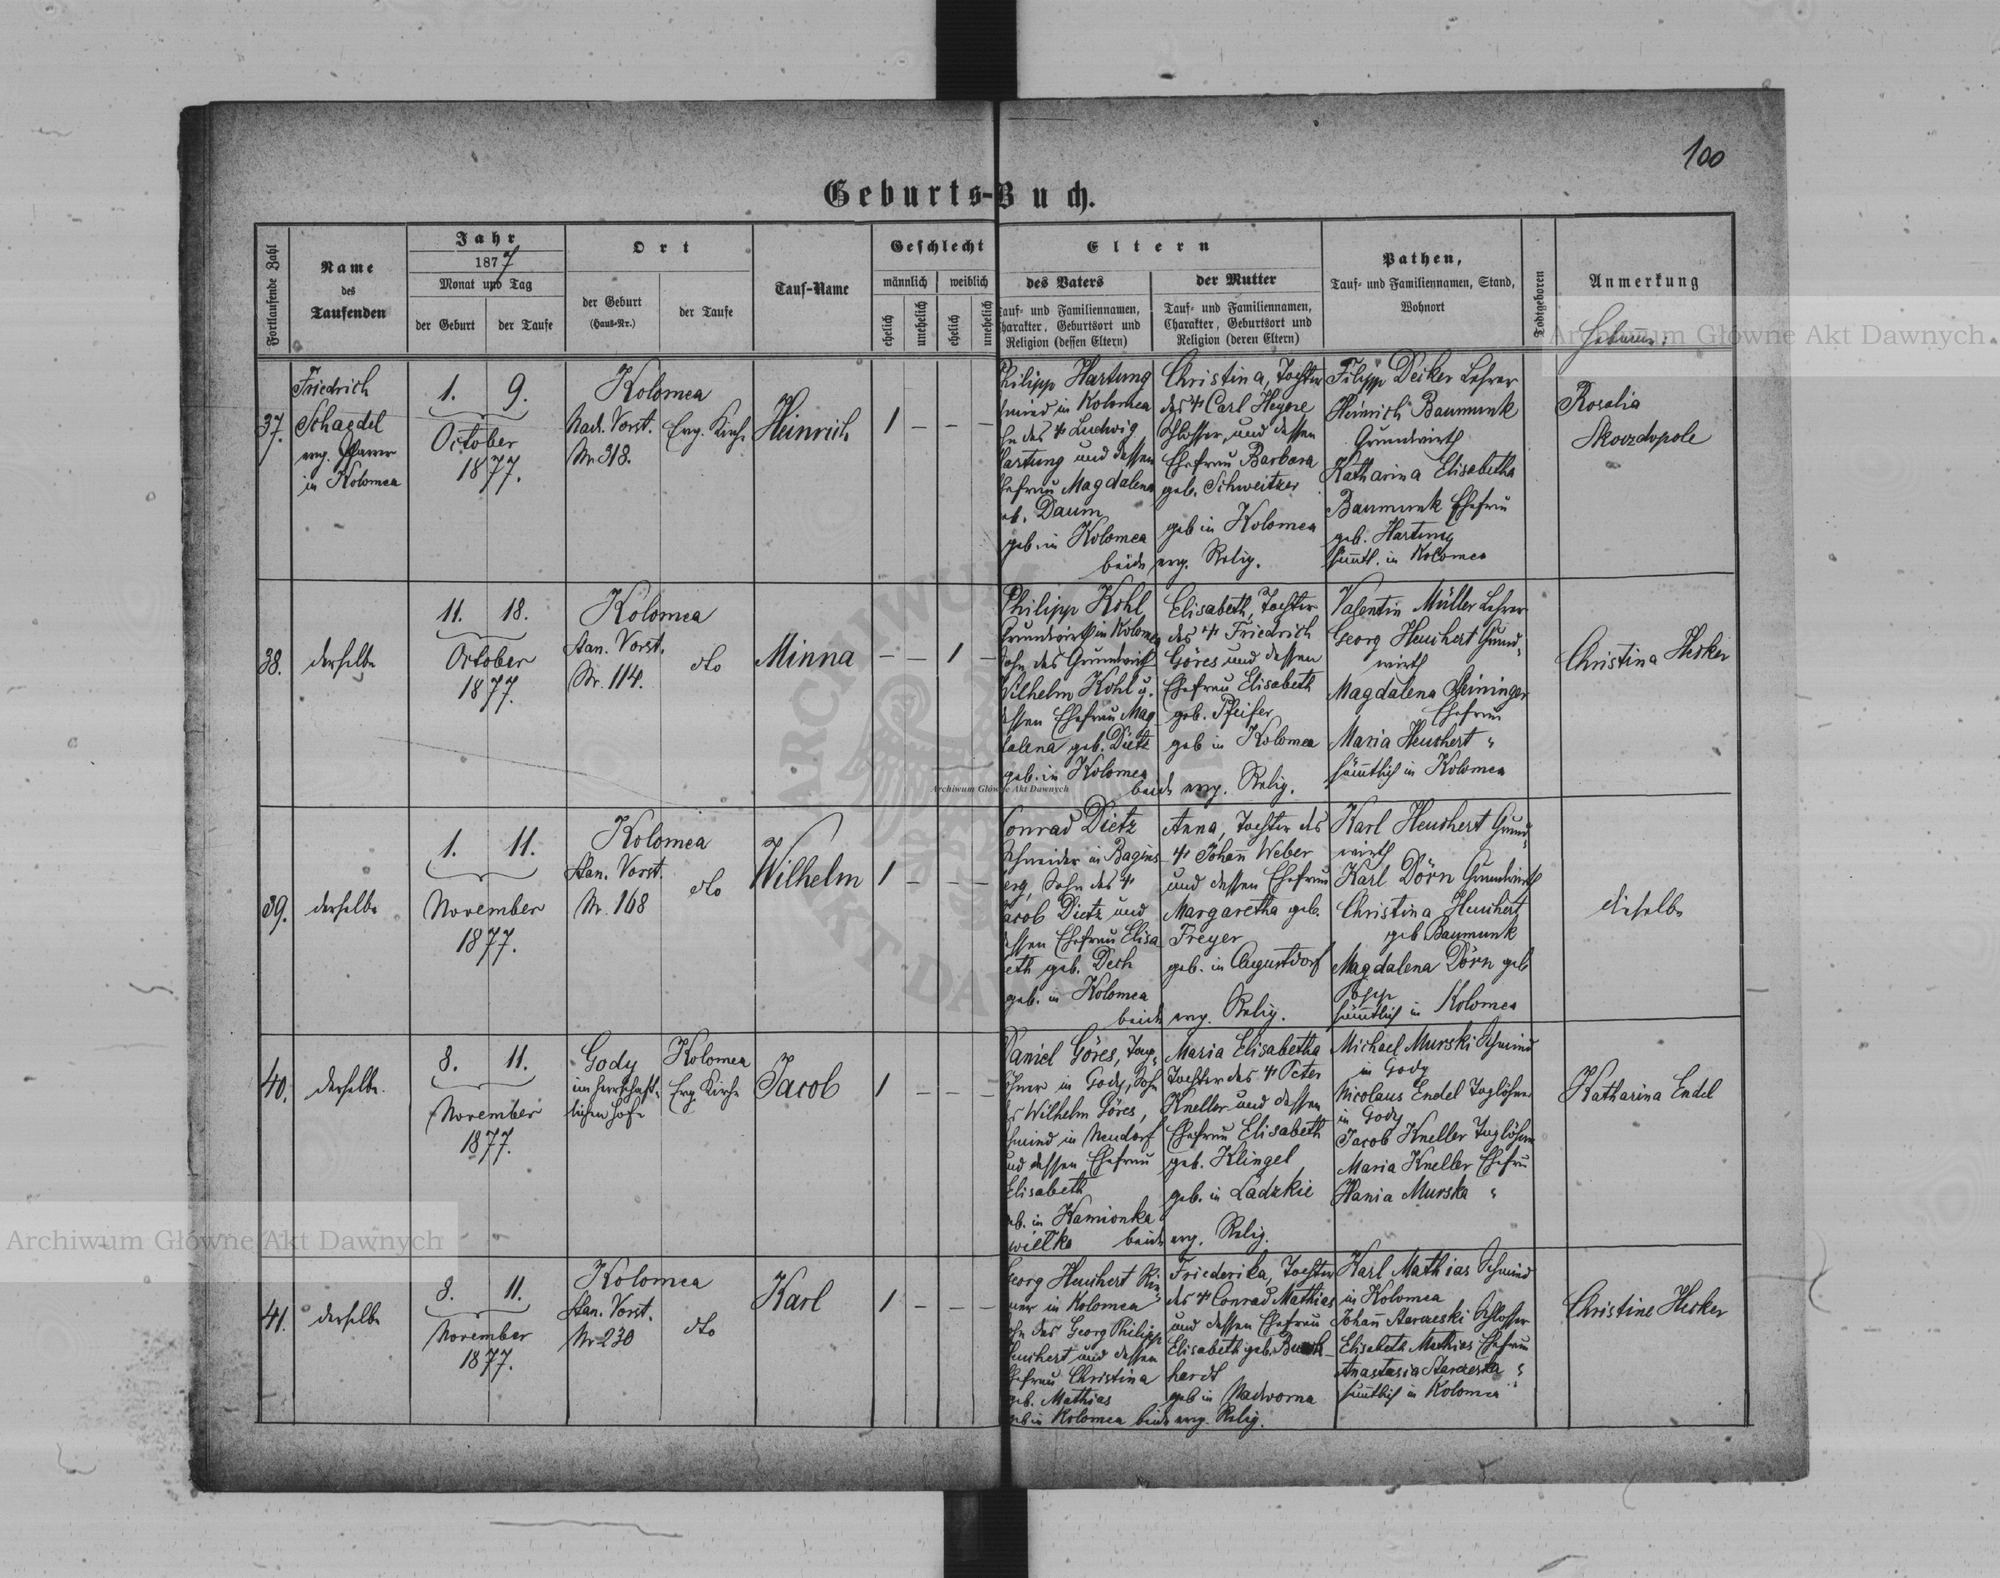 100
Geburts-Buch.
Fortlaufende Zahl
Name
des
Taufenden
Jahr
1877
Monat und Tag
der Geburt
der Taufe
Ort
der Geburt
(Haus-Nr.)
der Taufe
Tauf-Name
Geschlecht
männlich
weiblich
ehelich
unehelich
ehelich
unehelich
Eltern
des Vaters
auf- und Familiennamen,
harakter, Geburtsort und
Religion (dessen Eltern)
der Mutter
Tauf- und Familiennamen,
Charakter, Geburtsort und
Religion (deren Eltern)
Pathen,
Tauf- und Familiennamen, Stand,
Wohnort
Todtgeboren
Anmerkung
37.
Friedrich
Schagdel
evg. Pfarrer
in Kolomea
1. 9.
October
1877.
Kolomea
Nad. Vorst.
Nr 318.
Evg. Kirche
Heinrich
1 – – –
Philipp Hartung
in Kolomea
des Ludwig
artung und dessen
hefrau Magdalena
eb. Daum
geb. in Kolomea
beide evg. Relig.
Christina, Tochter
des Carl
Schlosser, und dessen
Ehefrau Barbara
geb. Schweitzer
geb in Kolomea
Filipp Decker Lehrer
Heinrich Baumunk
Grundwirth
Katharina Elisabetha
Baumunk Ehefrau
geb. Hartung
sämtl. in Kolomea
Rosalia
Skorzdopole
38.
derselbe
11. 18.
October
1877.
Kolomea
Stan. Vorst.
Nr. 114.
dto
Minna
– – 1 –
Philipp Kohl
Grundwirth in Kolomea
Sohn des Grundwirth
Wilhelm Kohl u.
essen Ehefrau Mag
dalena geb. Dietz
geb. in Kolomea
beide evg. Relig.
Elisabeth, Tochter
des Friedrich
Göres und dessen
Ehefrau Elisabeth
geb. Pfeifer
geb in Kolomea
Valentin Müller Lehrer
Georg Heuchert Grund-
wirth
Magdalena Deininger
Ehefrau
Maria Heuchert "
sämtlich in Kolomea
Christina Hecker
39.
derselbe
1. 11.
November
1877.
Kolomea
Stan. Vorst.
Nr. 168
dto
Wilhelm
1 – – –
Conrad Dietz
Schneider in Bagins
erg, Sohn des
Jacob Dietz und
essen Ehefrau Elisa
eth geb. Dech
geb. in Kolomea
beide evg. Relig.
Anna, Tochter des
Johann Weber
und dessen Ehefrau
Margaretha geb.
Freyer
geb. in Augustdorf
Karl Heuchert Grund-
wirth
Karl Dörn Grundwirth
Christina Heuchert
geb Baumunk
Magdalena Dörn geb
Opp
sämtlich in Kolomea
dieselbe
40.
derselbe.
8. 11.
November
1877.
Gody
im herrschaft-
lichen Hofe
Kolomea
Evg. Kirche
Jacob
1 – – –
Daniel Göres, Tag-
öhner in Gody, Sohn
es Wilhelm Göres,
chmied in Neudorf
und dessen Ehefrau
Elisabeth
eb. in Kamionka
wielka beide evg. Relig.
Maria Elisabetha
Tochter des Peter
Kneller und dessen
Ehefrau Elisabeth
geb. Klingel
geb. in Ladzkie
Michael Murski Schmied
in Gody
Nicolaus Endel Taglöhner
in Gody
Jacob Kneller Taglöhner
Maria Kneller Ehefrau
Hania Murska "
Katharina Endel
41.
derselbe
8. 11.
November
1877.
Kolomea
Stan. Vorst.
Nr 230
dto
Karl
1 – – –
Georg Heuchert
in Kolomea
ohn des Georg Philipp
Heuchert und dessen
Ehefrau Christina
geb. Mathias
geb in Kolomea beide evg. Relig.
Friederika, Tochter
des Conrad Mathias
und dessen Ehefrau
Elisabeth geb.
hardt
geb in Nadworna
Karl Mathias Schmied
in Kolomea
Johann Schlosser
Elisabeth Mathias Ehefrau
Anastasia "
sämtlich in Kolomea
Christine Hecker
Archiwum Główne Akt Dawnych
Archiwum Główne Akt Dawnych
Archiwum Główne Akt Dawnych